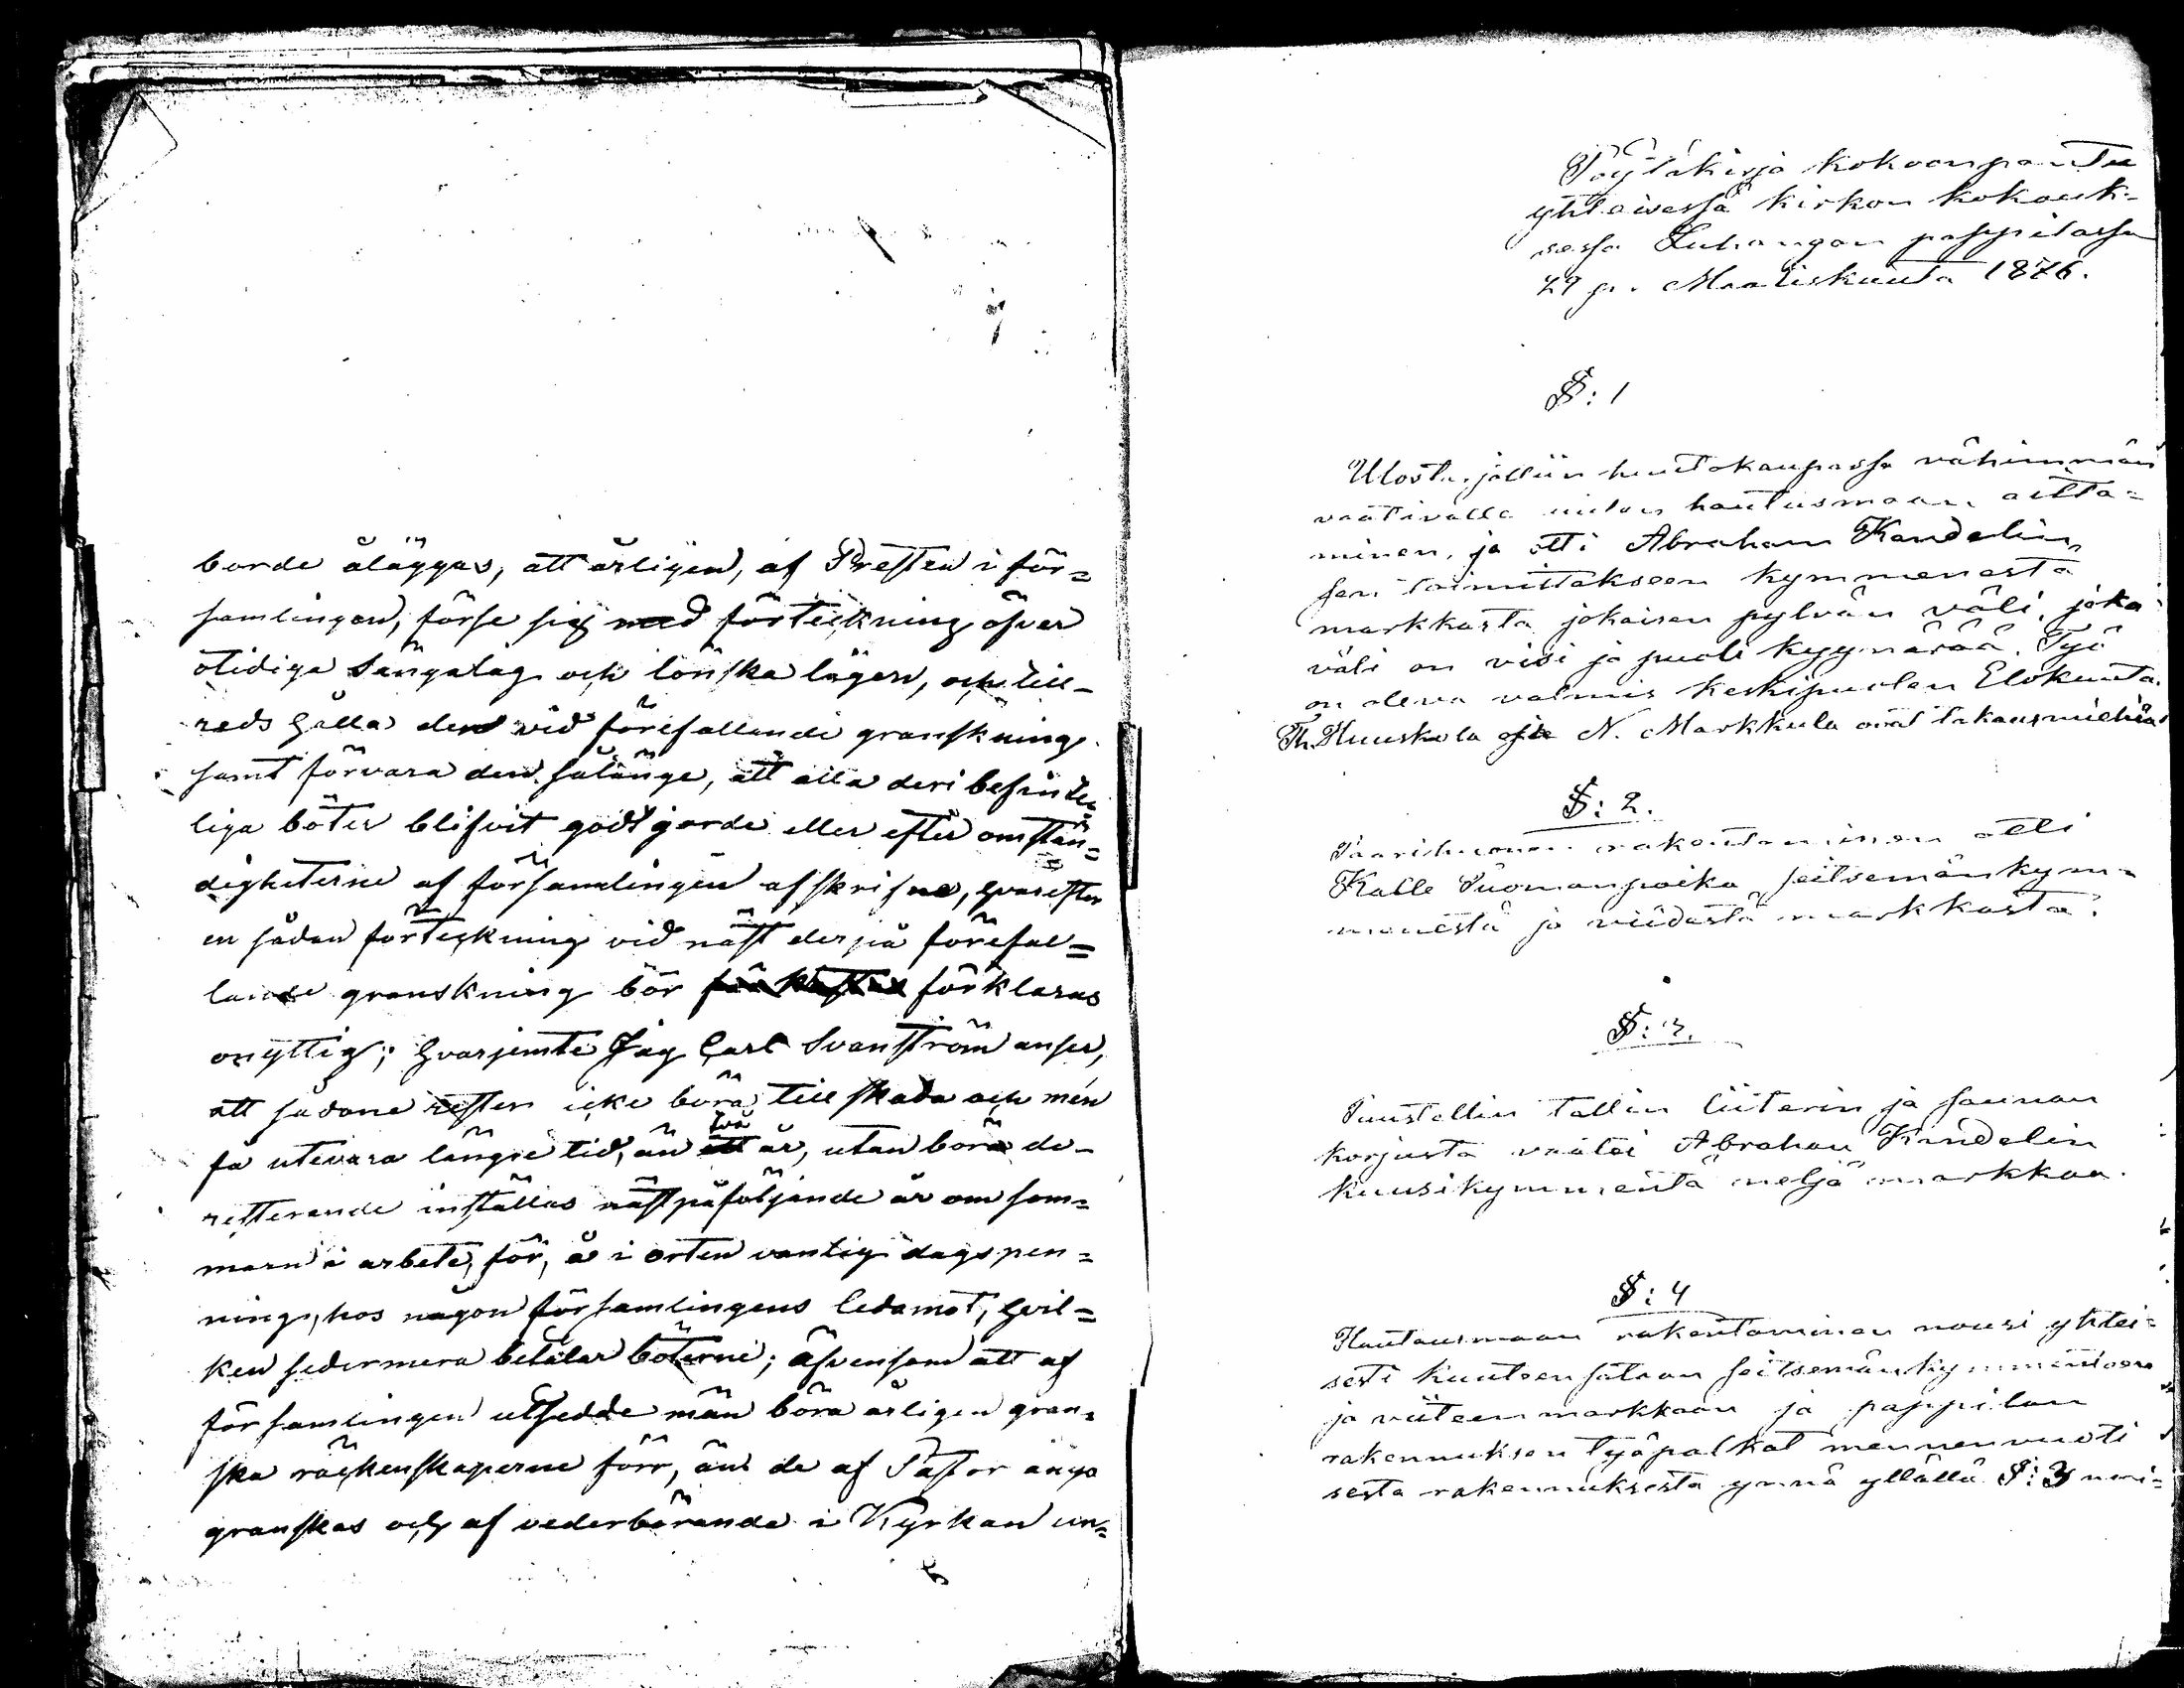 borde åläggas, att årligen, af Presten i för=
samlingen, förse sig med förteckning öfver
otidiga sängalag och lönska lägern, och till-
reds hålla den vid förefallande granskning
samt förvara den sålänge, att alla deri befint-
liga böter blifvit godtgjorde eller efter omstän=
digheterne af församlingen afskrifne, hvarefter
en sådan förteckning vid näst derpå förefal=
lande granskning bör förklaras
onyttig; hvarjemte Jag Carl Svanström anser,
att sådane rester icke böra till skada och mén
få utevara längre tid, än ett två år, utan böra de
resterande inställas nästpåföljande år om som=
maren i arbete, för, å i orten vanlig dagspen=
ning, hos någon församlingens ledamot, hvil=
ken sedermera betalar böterne; äfvensom att af
församlingen utsedde män böra årligen gran=
ska räckenskaperne förr, än de af Pastor ånyo
granskas och af vederbörande i Kyrkan un=
Pöytäkirja kokoonpantu
yhteisessä kirkon kokouk=
sessa Luhangan pappilassa
29 p. Maaliskuuta 1876.
§: 1
Ulostarjottiin huutokaupassa vähimmän
vaativalle uuden hautusmaan aitta=
minen, ja otti Abraham Kandelin
sen toimittakseen kymmenestä
markkasta jokaisen pylvän väli, joka
väli on viisi ja puoli kyynärää. Työ
on oleva valmis keskipuolen Elokuuta.
Th. Huuskola ja N. Markkula ovat takausmiehiä
§: 2.
Paarihuoneen rakentaminen otti
Kalle Tuomanpoika seitsemänkym=
menestä ja viidestä markkasta.
§: 3.
Puustellin tallin liiterin ja saunan
korjusta vaatei Abraham Kandelin
kuusikymmentä neljä markkaa.
§: 4
Hautausmaan rakentaminen nousi yhtei=
sesti kuuteensataan seitsemänkymmenteen
ja viiteen markkaan ja pappilan
rakennuksen työpalkat mennenvuoti
sesta rakennuksesta ynnä yllällä §: 3 mai=